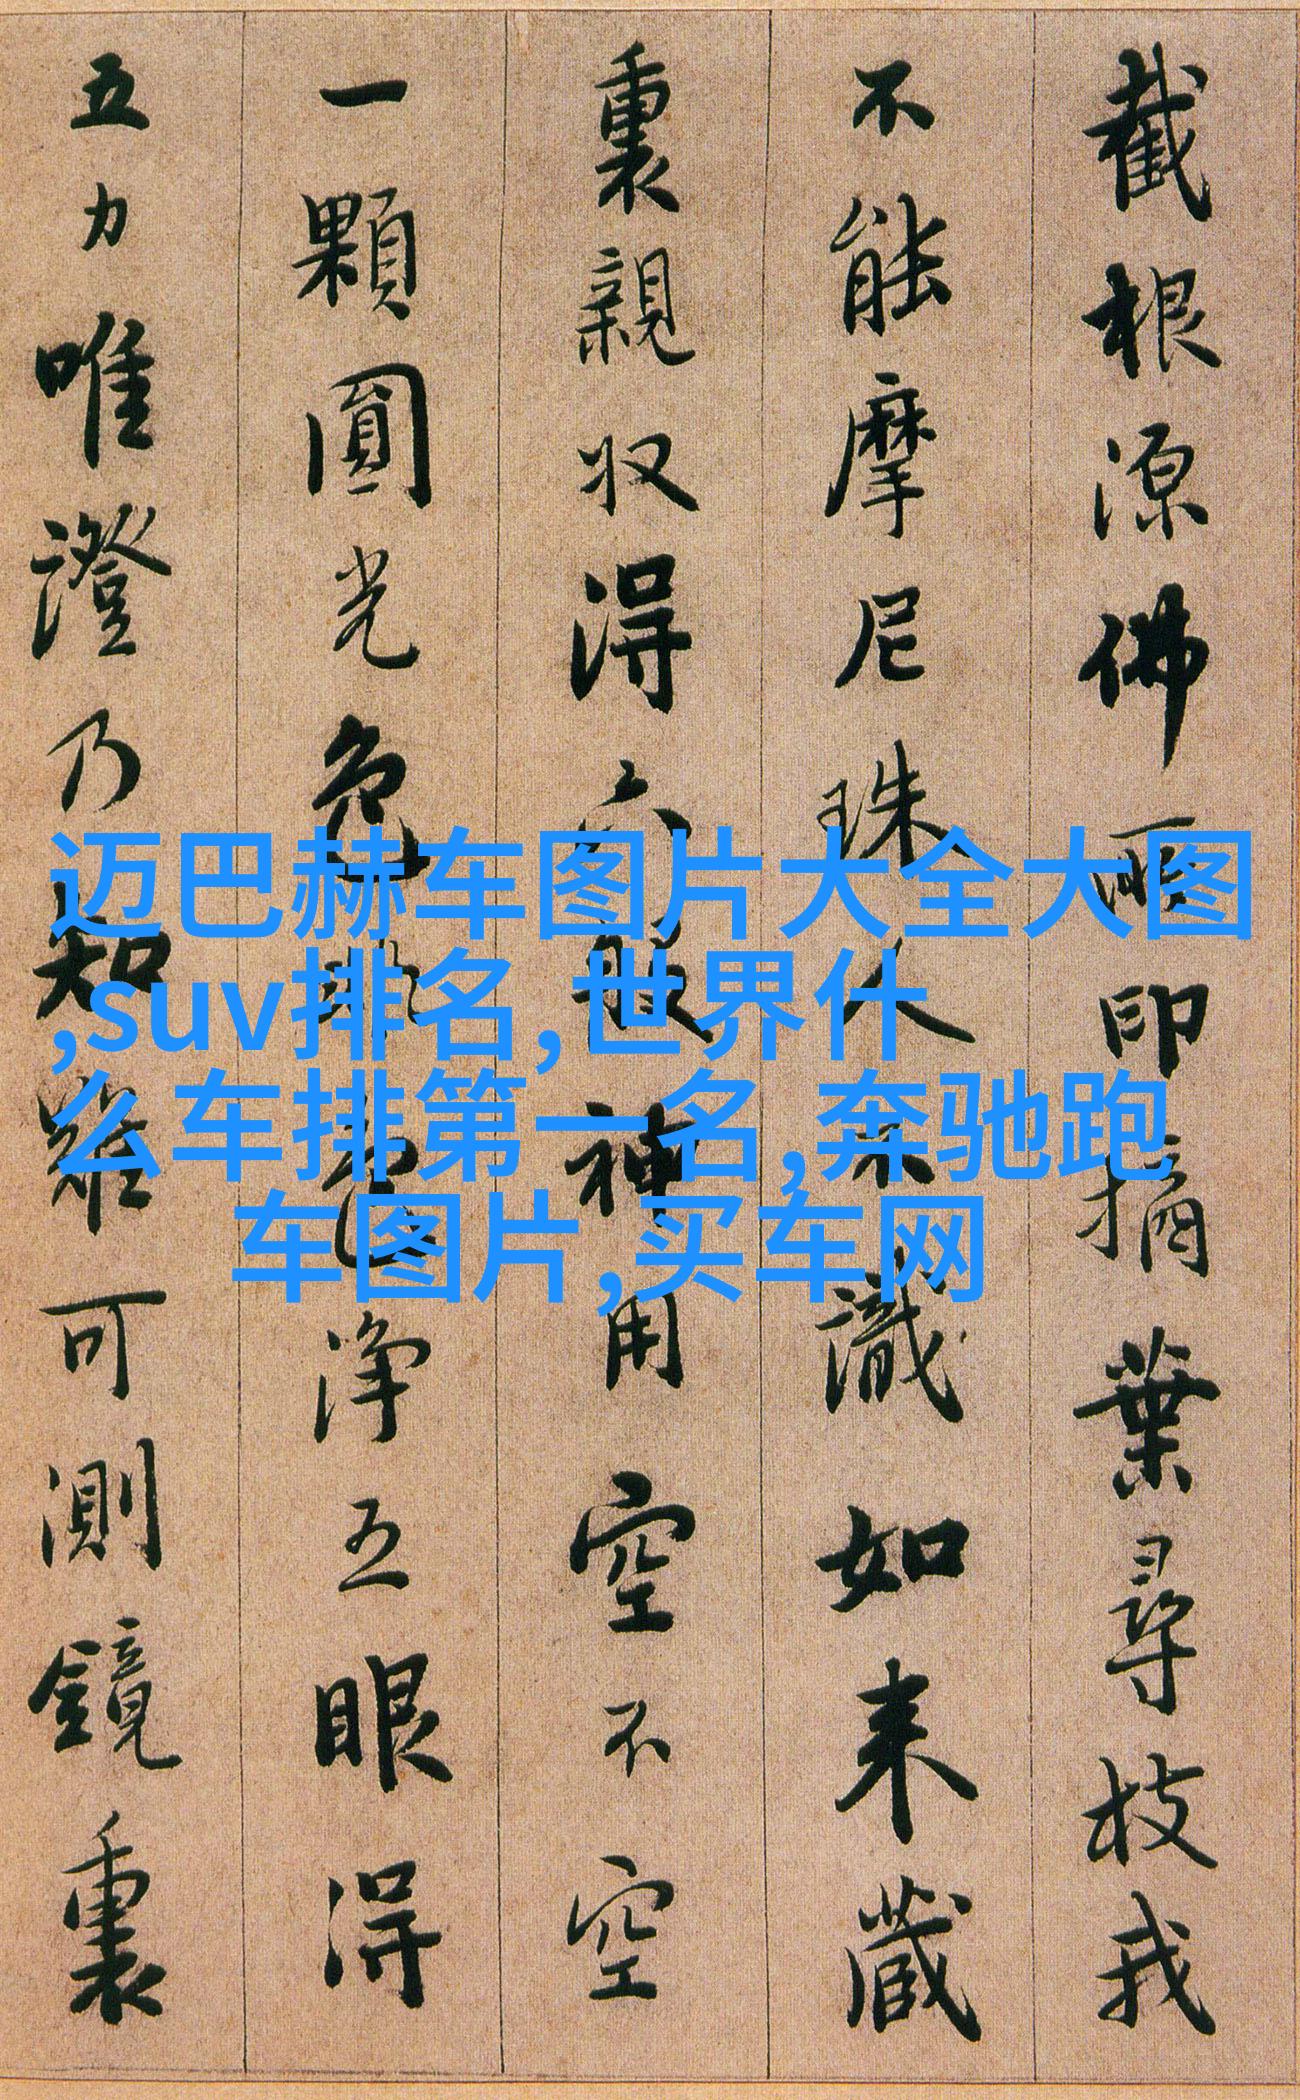 截根源佛所印摘葉尋枝我
不能摩尼珠人不識如来藏
裏親収得六般神用空不空
一顆圓光色非色淨五眼得
五力唯證乃知難可測鏡裏
迈巴赫车图片大全大图
,suv排名,世界什
么车排第一名,奔驰跑
车图片,买车网